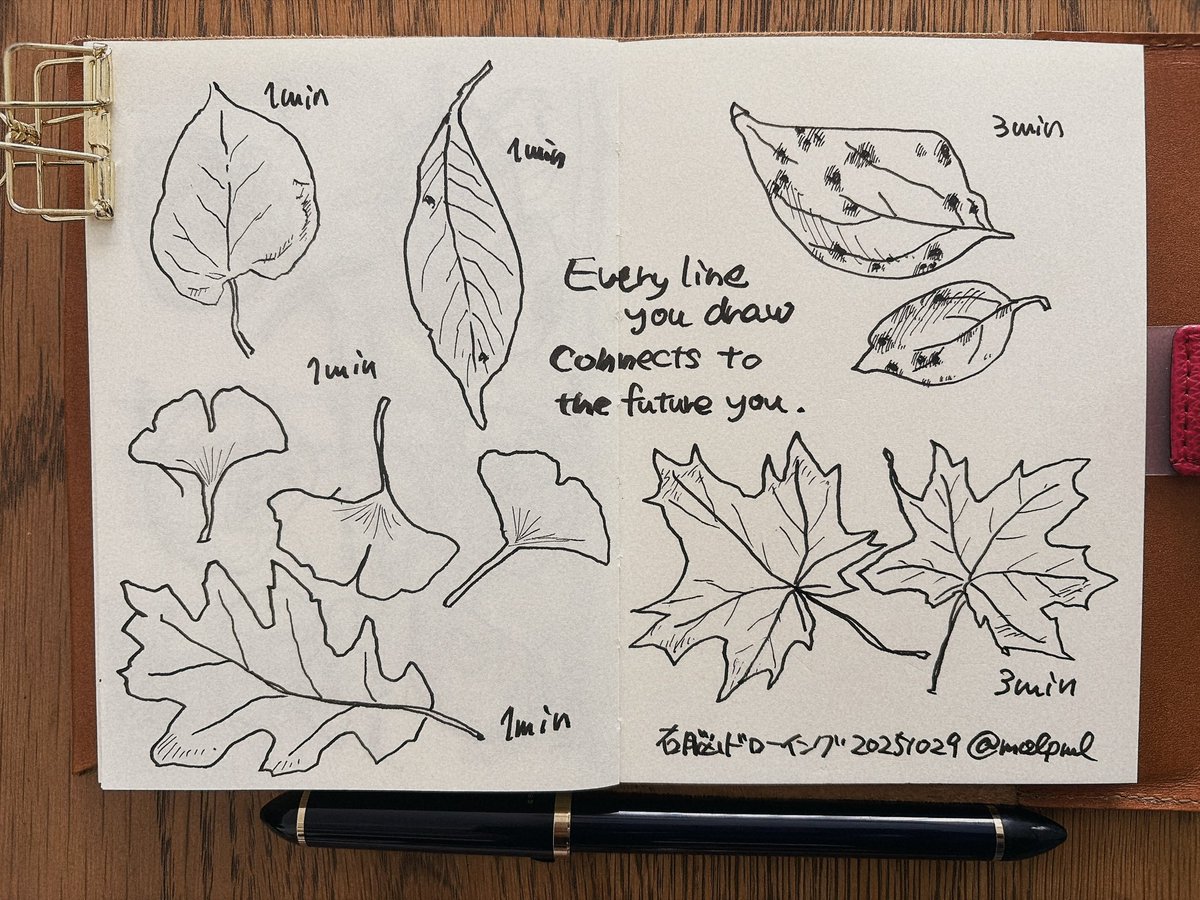 1min
1min
1min
1min
Every line
you draw
connects to
the future you.
3min
3min
右脳ドローイング 20251029